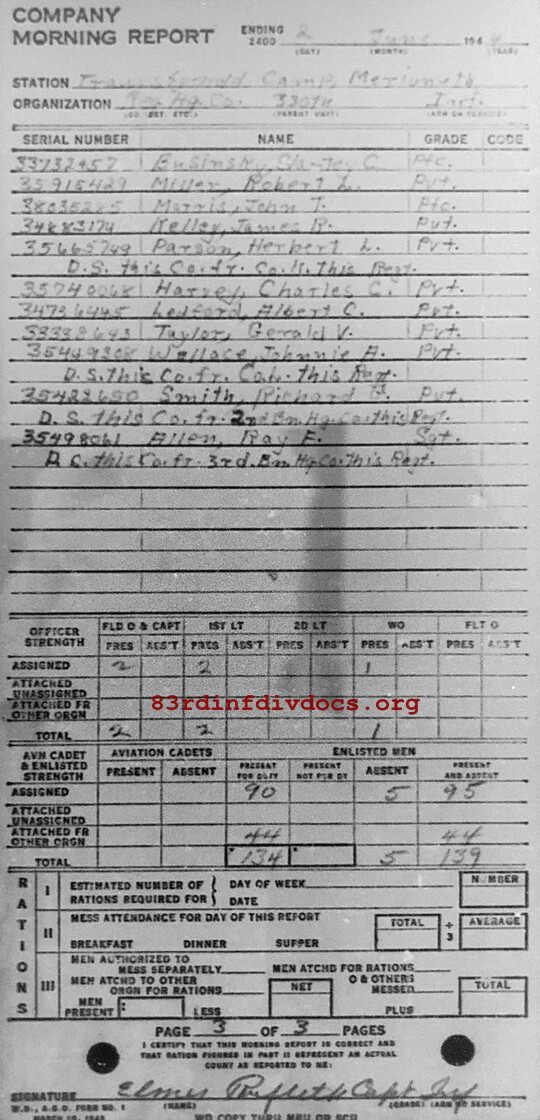 COMPANY
MORNING REPORT ENDING 2400 2 (DAY) June (MONTH) 194 (YEAR)
STATION Camp, Merioneth
ORGANIZATION Hq. Co. 330th Inf.
(CO. DET. ETC.) (PARENT UNIT) (ARM OR SERVICE)
SERIAL NUMBER NAME GRADE CODE
33732457 Businsky, Stanley C Pfc.
35915429 Miller, Robert L. Pvt.
38035285 Morris, John T. Pfc.
34883174 Kelley, James R. Pvt.
35665749 Parson, Herbert L. Pvt.
D.S. this Co. fr. Co. K. This Regt.
35740068 Harvey, Charles C. Pvt.
34736445 Ledford, Albert C. Pvt.
33338643 Taylor, Gerald V. Pvt.
35449308 Wallace, Johnnie A. Pvt.
D.S. this Co. fr. Co. L. this Regt.
35422650 Smith, Richard Pvt.
D.S. this Co. fr. 2nd Bn. Hq. Co. this Regt.
35498061 Allen, Ray E. Sgt.
this Co. fr. 3rd. Bn. Hq. Co. This Regt.
OFFICER STRENGTH FLD O & CAPT 1ST LT 2D LT WO FLT O
PRES ABS'T PRES ABS'T PRES ABS'T PRES ABS'T PRES ABS'T
ASSIGNED 2 2 1
ATTACHED UNASSIGNED
ATTACHED FR OTHER ORGN
83rdinfdivdocs.org
TOTAL 2 2 1
AVN CADET & ENLISTED STRENGTH AVIATION CADETS ENLISTED MEN
PRESENT ABSENT PRESENT FOR DUTY PRESENT NOT FOR DY ABSENT PRESENT AND ABSENT
ASSIGNED 90 5 95
ATTACHED UNASSIGNED
ATTACHED FR OTHER ORGN 44 44
TOTAL 134 5 139
RATIONS
I ESTIMATED NUMBER OF RATIONS REQUIRED FOR { DAY OF WEEK DATE NUMBER
II MESS ATTENDANCE FOR DAY OF THIS REPORT TOTAL ÷ 3 AVERAGE
BREAKFAST DINNER SUPPER
III MEN AUTHORIZED TO MESS SEPARATELY MEN ATCHD FOR RATIONS
MEN ATCHD TO OTHER ORGN FOR RATIONS NET O & OTHERS MESSED TOTAL
MEN PRESENT LESS PLUS
PAGE 3 OF 3 PAGES
I CERTIFY THAT THIS MORNING REPORT IS CORRECT AND
THAT RATION FIGURES IN PART II REPRESENT AN ACTUAL
COUNT AS REPORTED TO ME:
SIGNATURE Elmer Capt. Inf.
W.D., A.G.O. FORM NO. 1 (NAME) (GRADE) (ARM OR SERV)
MARCH 12, 1943 WD COPY THRU MRU OR SCR